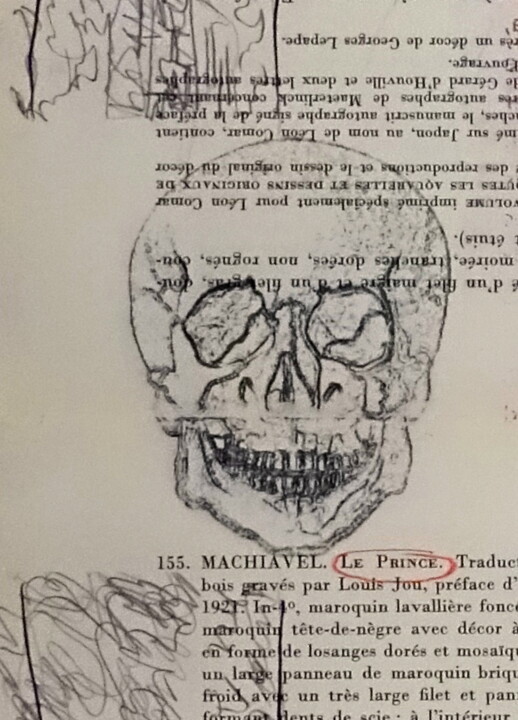 d'un filet maigre et d'un filet gras, dou-
moirée, tranches dorées, non rognés, cou-
étuis).
VOLUME imprimé spécialement pour Léon Comar
LES AQUARELLES ET DESSINS ORIGINAUX DE
des reproductions et le dessin original du décor
mé sur Japon, au nom de Léon Comar, contient
ches, le manuscrit autographe signé de la préface
res autographes de Maeterlinck concernant
de Gérard d'Houville et deux lettres autographes
l'ouvrage.
rès un décor de Georges Lepape.
155. MACHIAVEL. LE PRINCE. Traduct
bois gravés par Louis Jou, préface d'
1921. In-4º, maroquin lavallière foncé
maroquin tête-de-nègre avec décor à
en forme de losanges dorés et mosaïqu
un large panneau de maroquin briqu
froid avec un très large filet et pan
formant dents de scie ; à l'intérieur